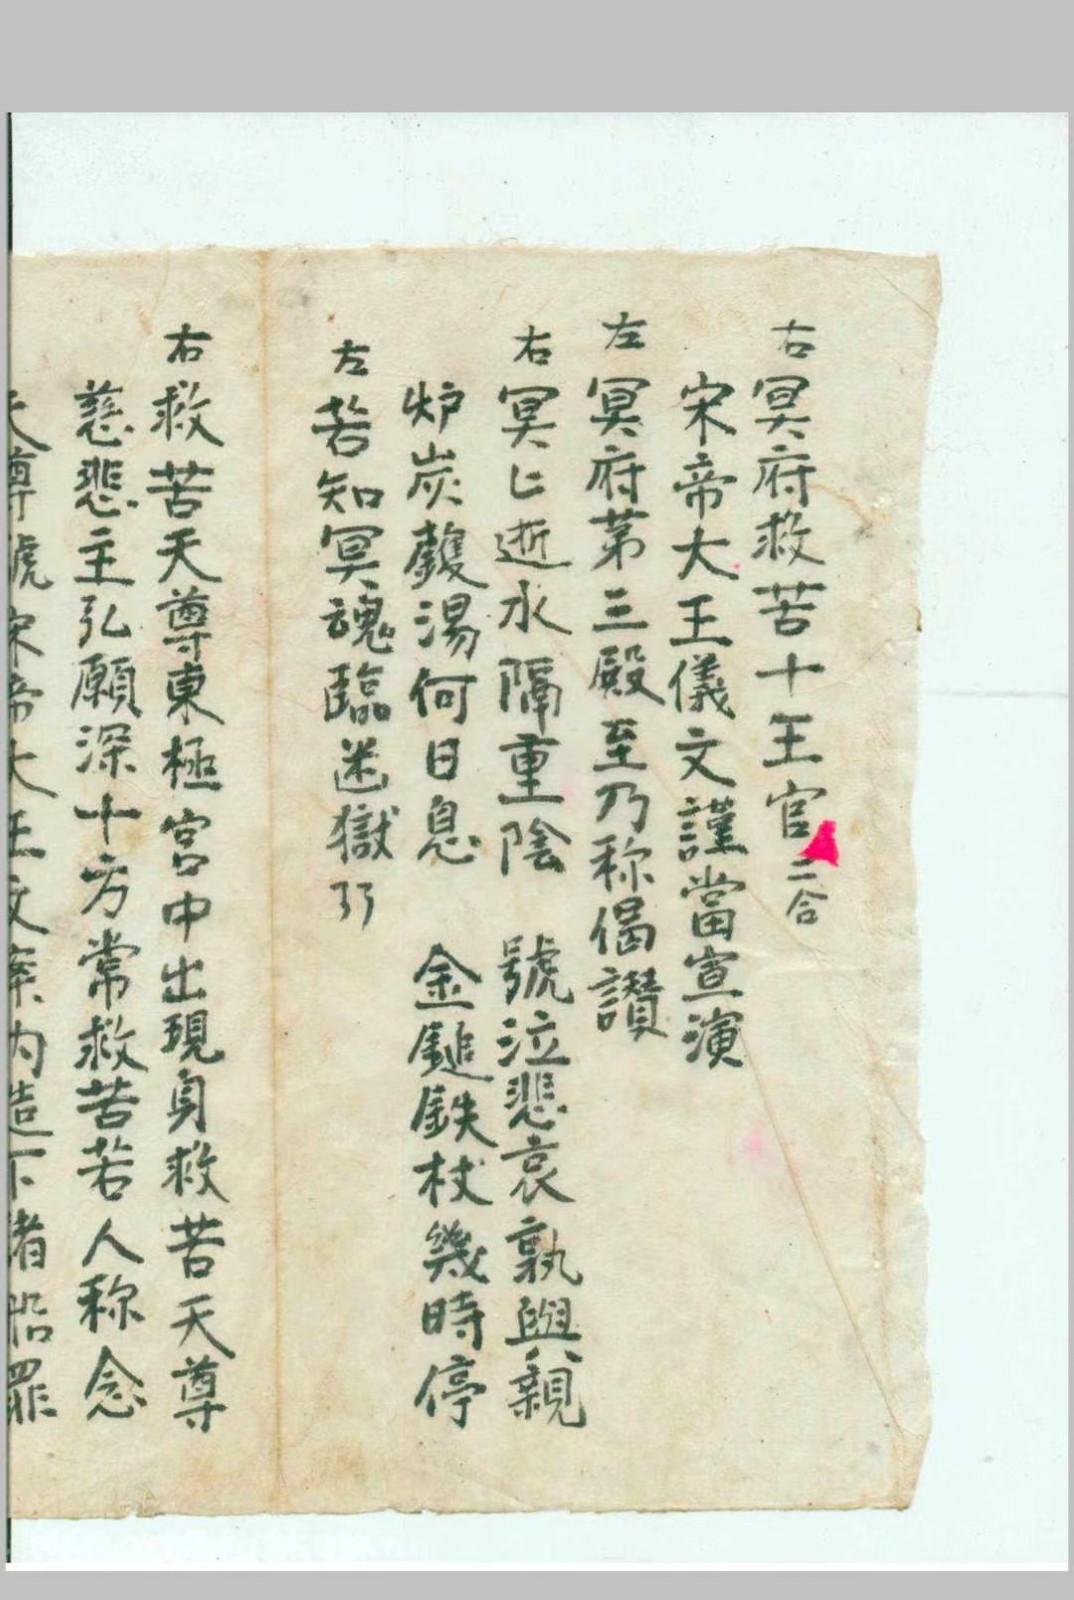 右冥府救苦十王官二合
宋帝大王儀文謹當宣演
左冥府第三殿至乃称偈讃
右冥亡逝水隔重陰 號泣悲哀孰與親
炉炭鑊湯何日息 金鎚鉄杖幾時停
左若知冥魂臨迷獄
右救苦天尊東極宮中出現身救苦天尊
慈悲主弘願深十方常救苦若人称念
天尊號宋帝大王文案内造下諸般罪